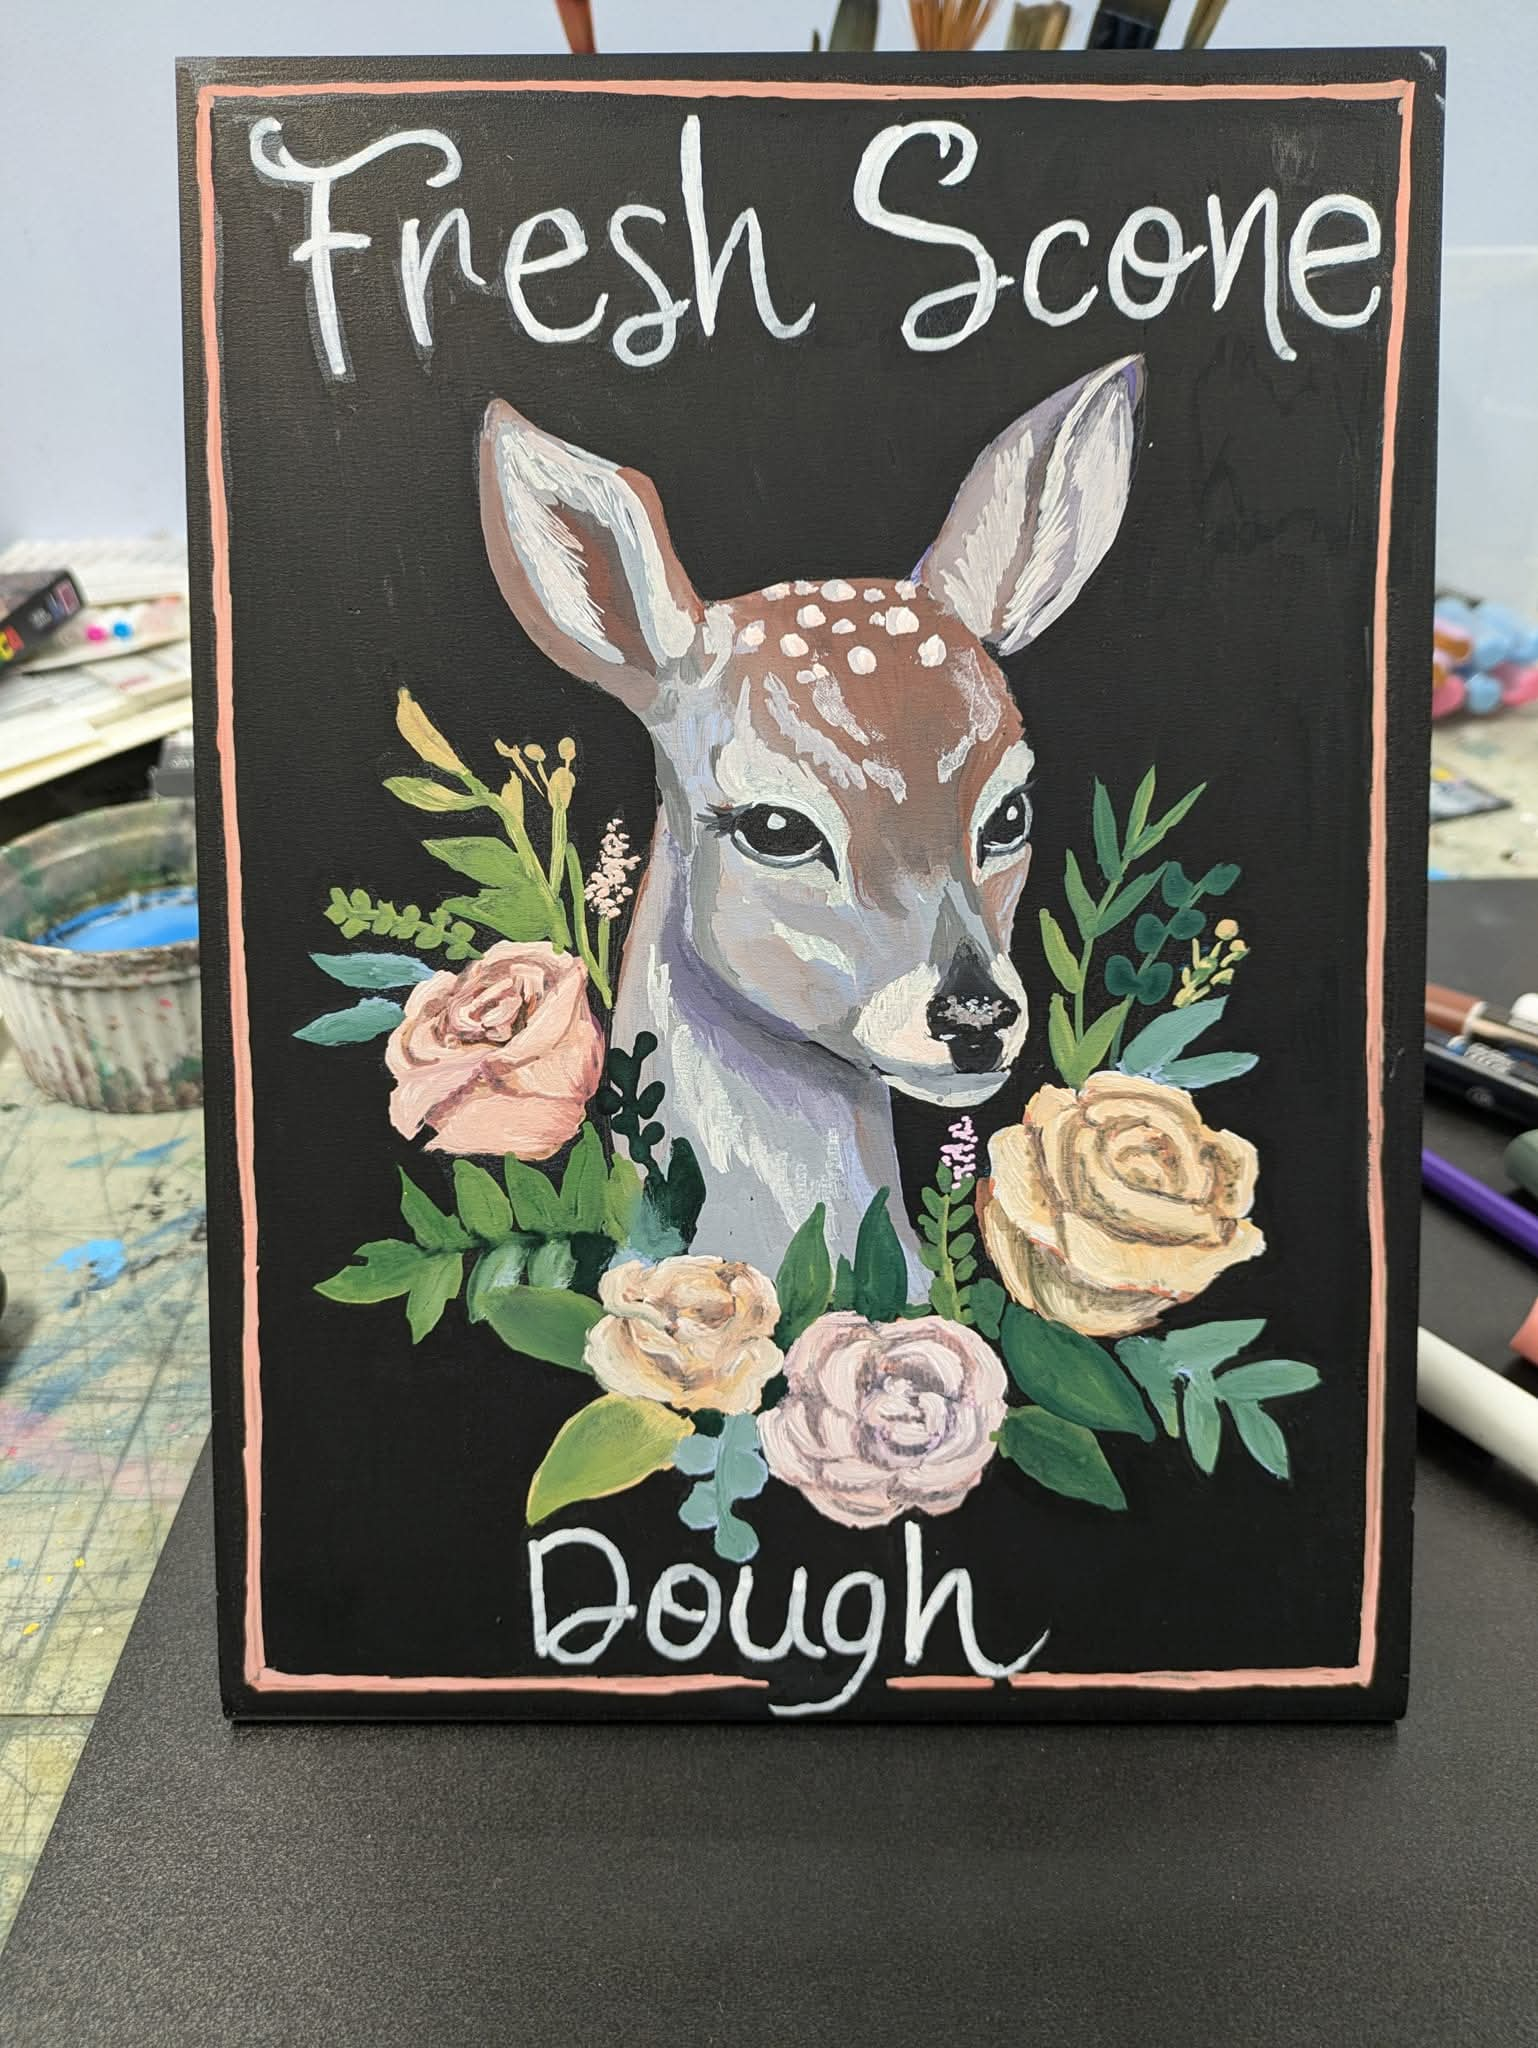 Fresh Scone
Dough